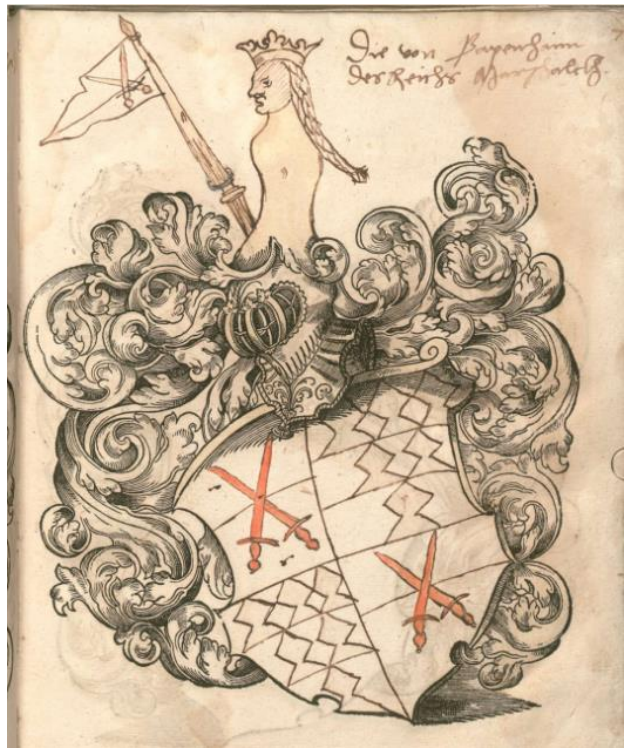 Die von Papenhim
des Reichs Marschalckh.